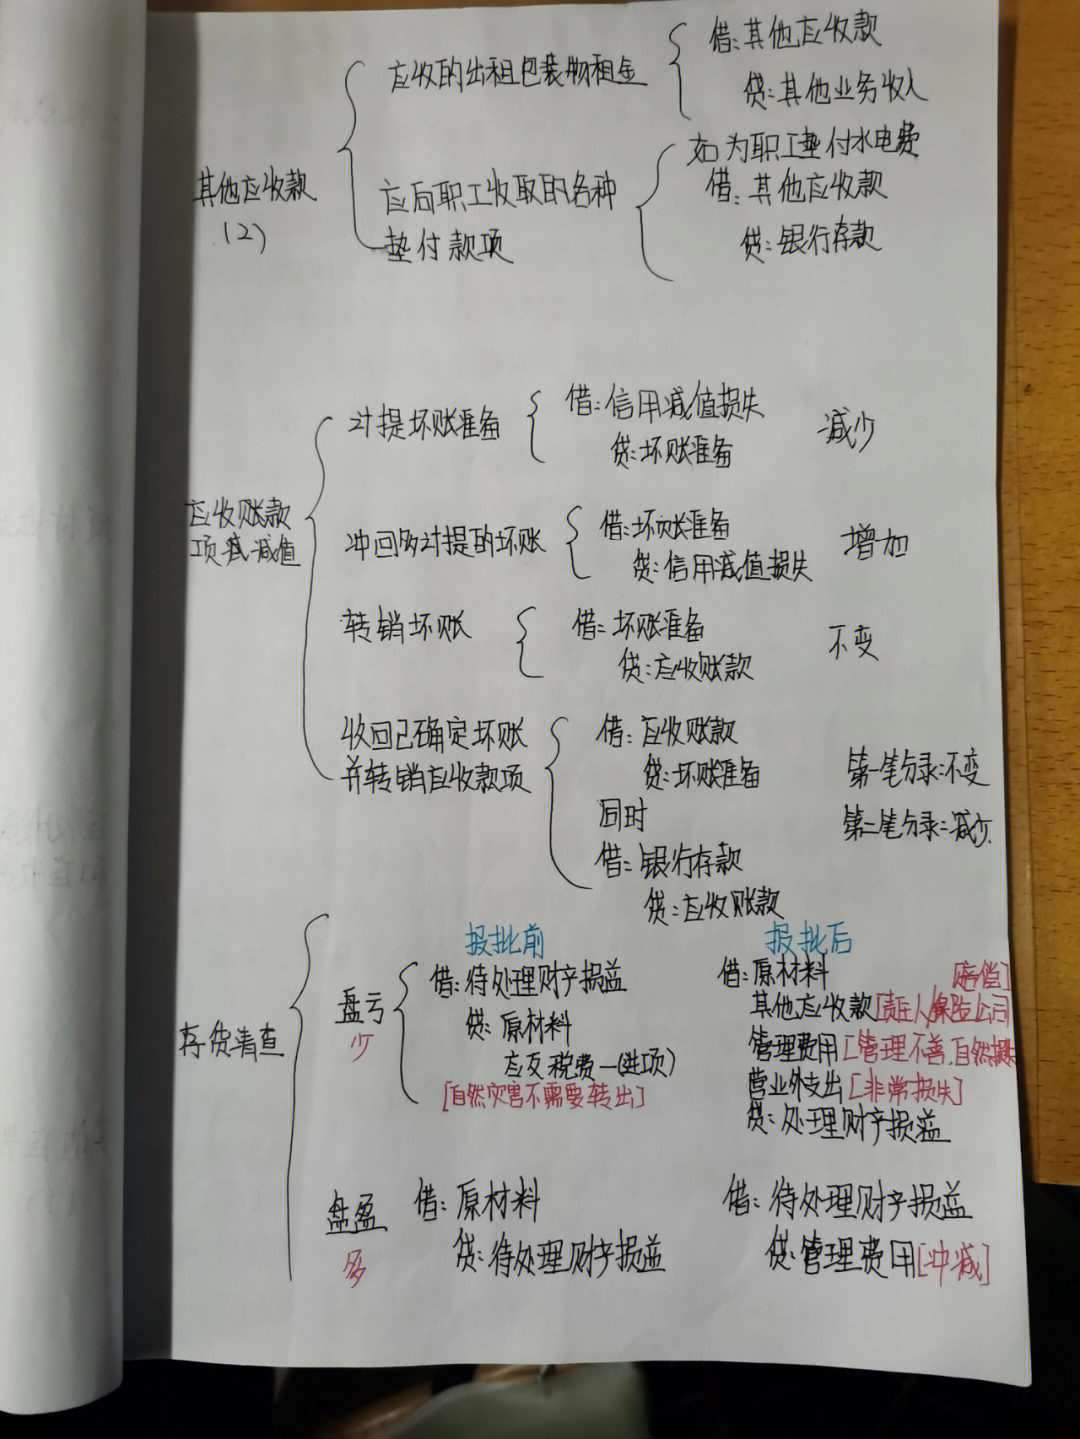 其他应收款
(2)
应收的出租包装物租金
借:其他应收款
贷:其他业务收入
应向职工收取的各种
垫付款项
如为职工垫付水电费
借:其他应收款
贷:银行存款
应收账款
项减减值
计提坏账准备
借:信用减值损失
贷:坏账准备
减少
冲回多计提的坏账
借:坏账准备
贷:信用减值损失
增加
转销坏账
借:坏账准备
贷:应收账款
不变
收回已确定坏账
并转销应收款项
借:应收账款
贷:坏账准备
同时
借:银行存款
贷:应收账款
第一笔分录:不变
第二笔分录:减少
存货清查
盘亏
少
报批前
借:待处理财产损益
贷:原材料
应交税费—(进项)
[自然灾害不需要转出]
报批后
借:原材料
其他应收款[责任人,保险公司赔偿]
管理费用[管理不善,自然损失
营业外支出[非常损失]
贷:处理财产损益
盘盈
多
借:原材料
贷:待处理财产损益
借:待处理财产损益
贷:管理费用[冲减]